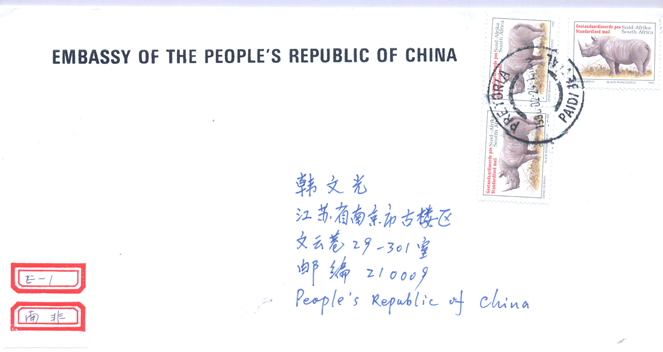 EMBASSY OF THE PEOPLE'S REPUBLIC OF CHINA
Gestandaardiseerde pos Suid-Afrika
Standardised mail South Africa
Gestandaardiseerde pos Suid-Afrika
Standardised mail South Africa
Gestandaardiseerde pos Suid-Afrika
Standardised mail South Africa
PRETORIA
PAID
韩文光
江苏省南京市古楼区
文云巷29-301室
邮编210009
People's Republic of China
E-1
南非